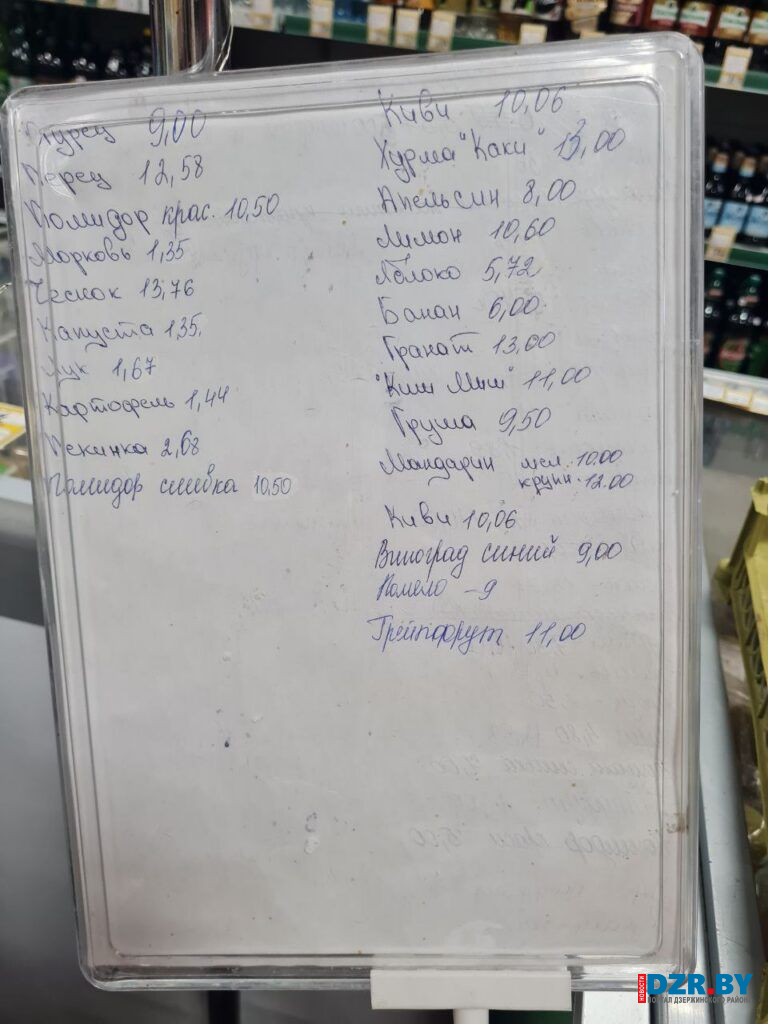 Огурец 9,00
Перец 12,58
Помидор крас. 10,50
Морковь 1,35
Чеснок 13,76
Капуста 1,35.
Лук 1,67
Картофель 1,44
Пекинка 2,68
Помидор сливка 10,50
Киви 10,06
Хурма "Каки" 13,00
Апельсин 8,00
Лимон 10,60
Яблоко 5,72
Банан 6,00
Гранат 13,00
"Киш Миш" 11,00
Груша 9,50
Мандарин мел. 10.00
крупн. 12.00
Киви 10,06
Виноград синий 9,00
Помело - 9
Грейпфрут 11,00
НОВОСТИ DZR.BY
ПОРТАЛ ДЗЕРЖИНСКОГО РАЙОНА